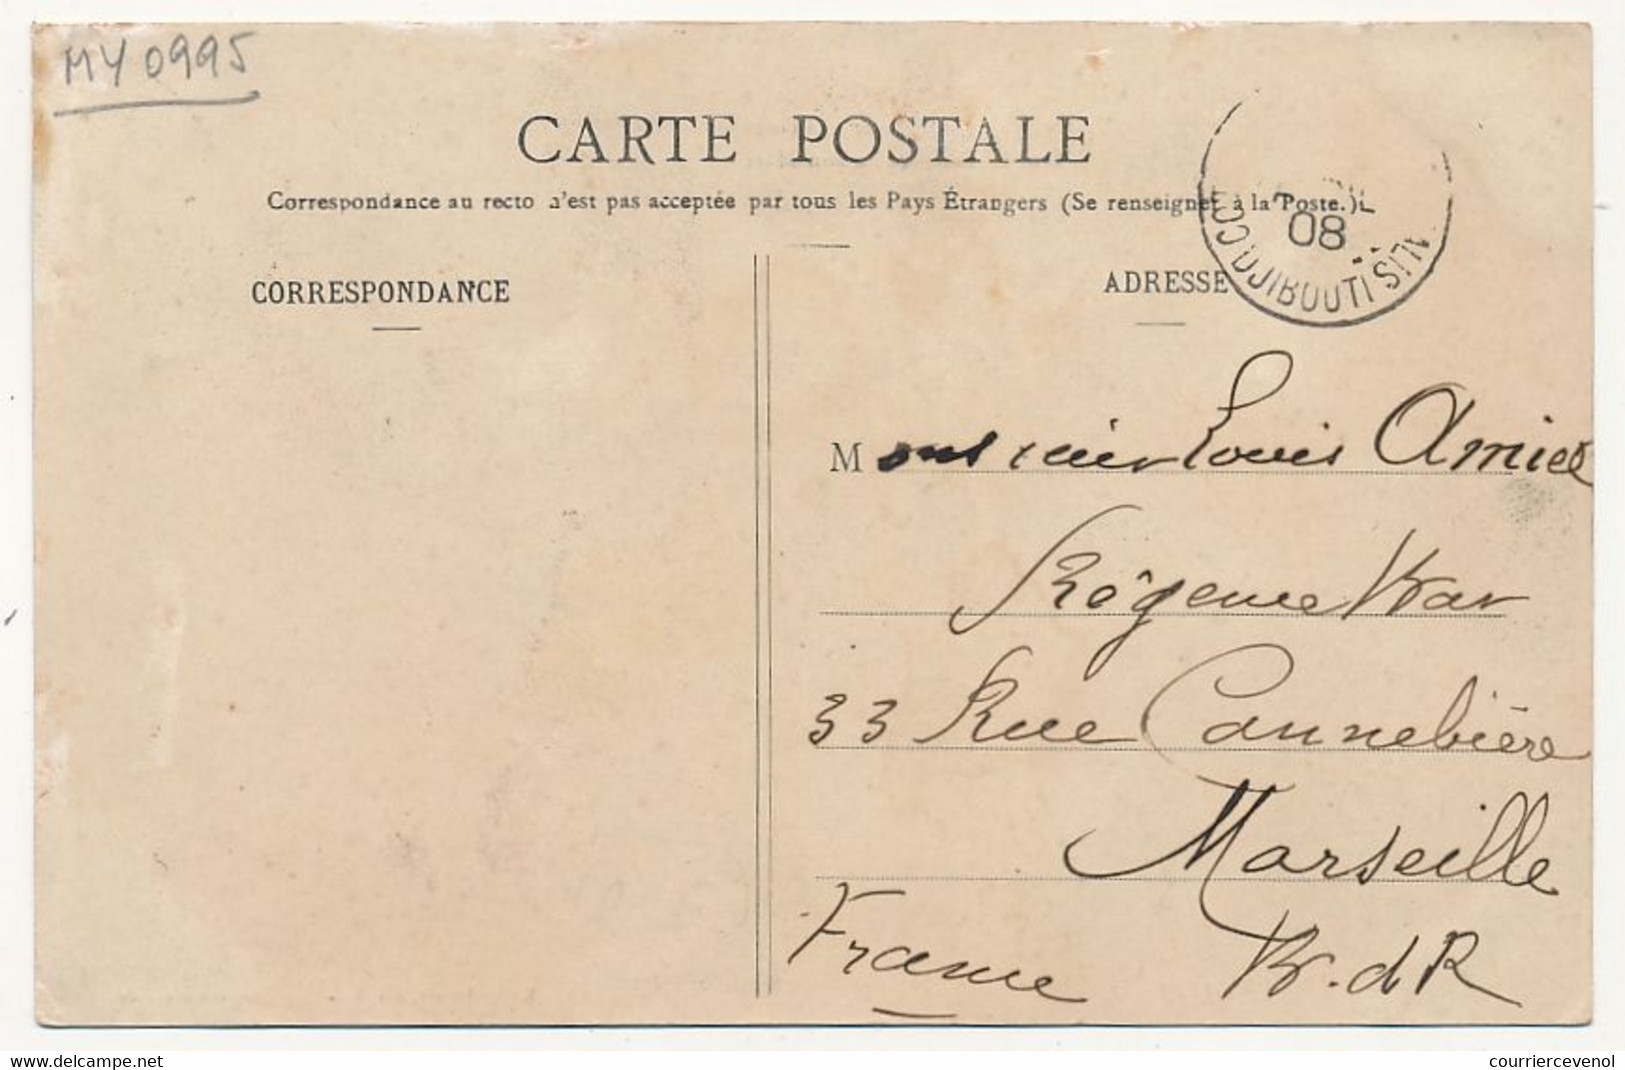 MY 0995
CARTE POSTALE
Correspondance au recto n'est pas acceptée par tous les Pays Étrangers (Se renseigner à la Poste.)
08
DJIBOUTI
CORRESPONDANCE
ADRESSE
Monsieur Louis Amiel
Régence Bar
33 Rue Cannebière
Marseille
France B. d R
delcampe.net
courriercevenol